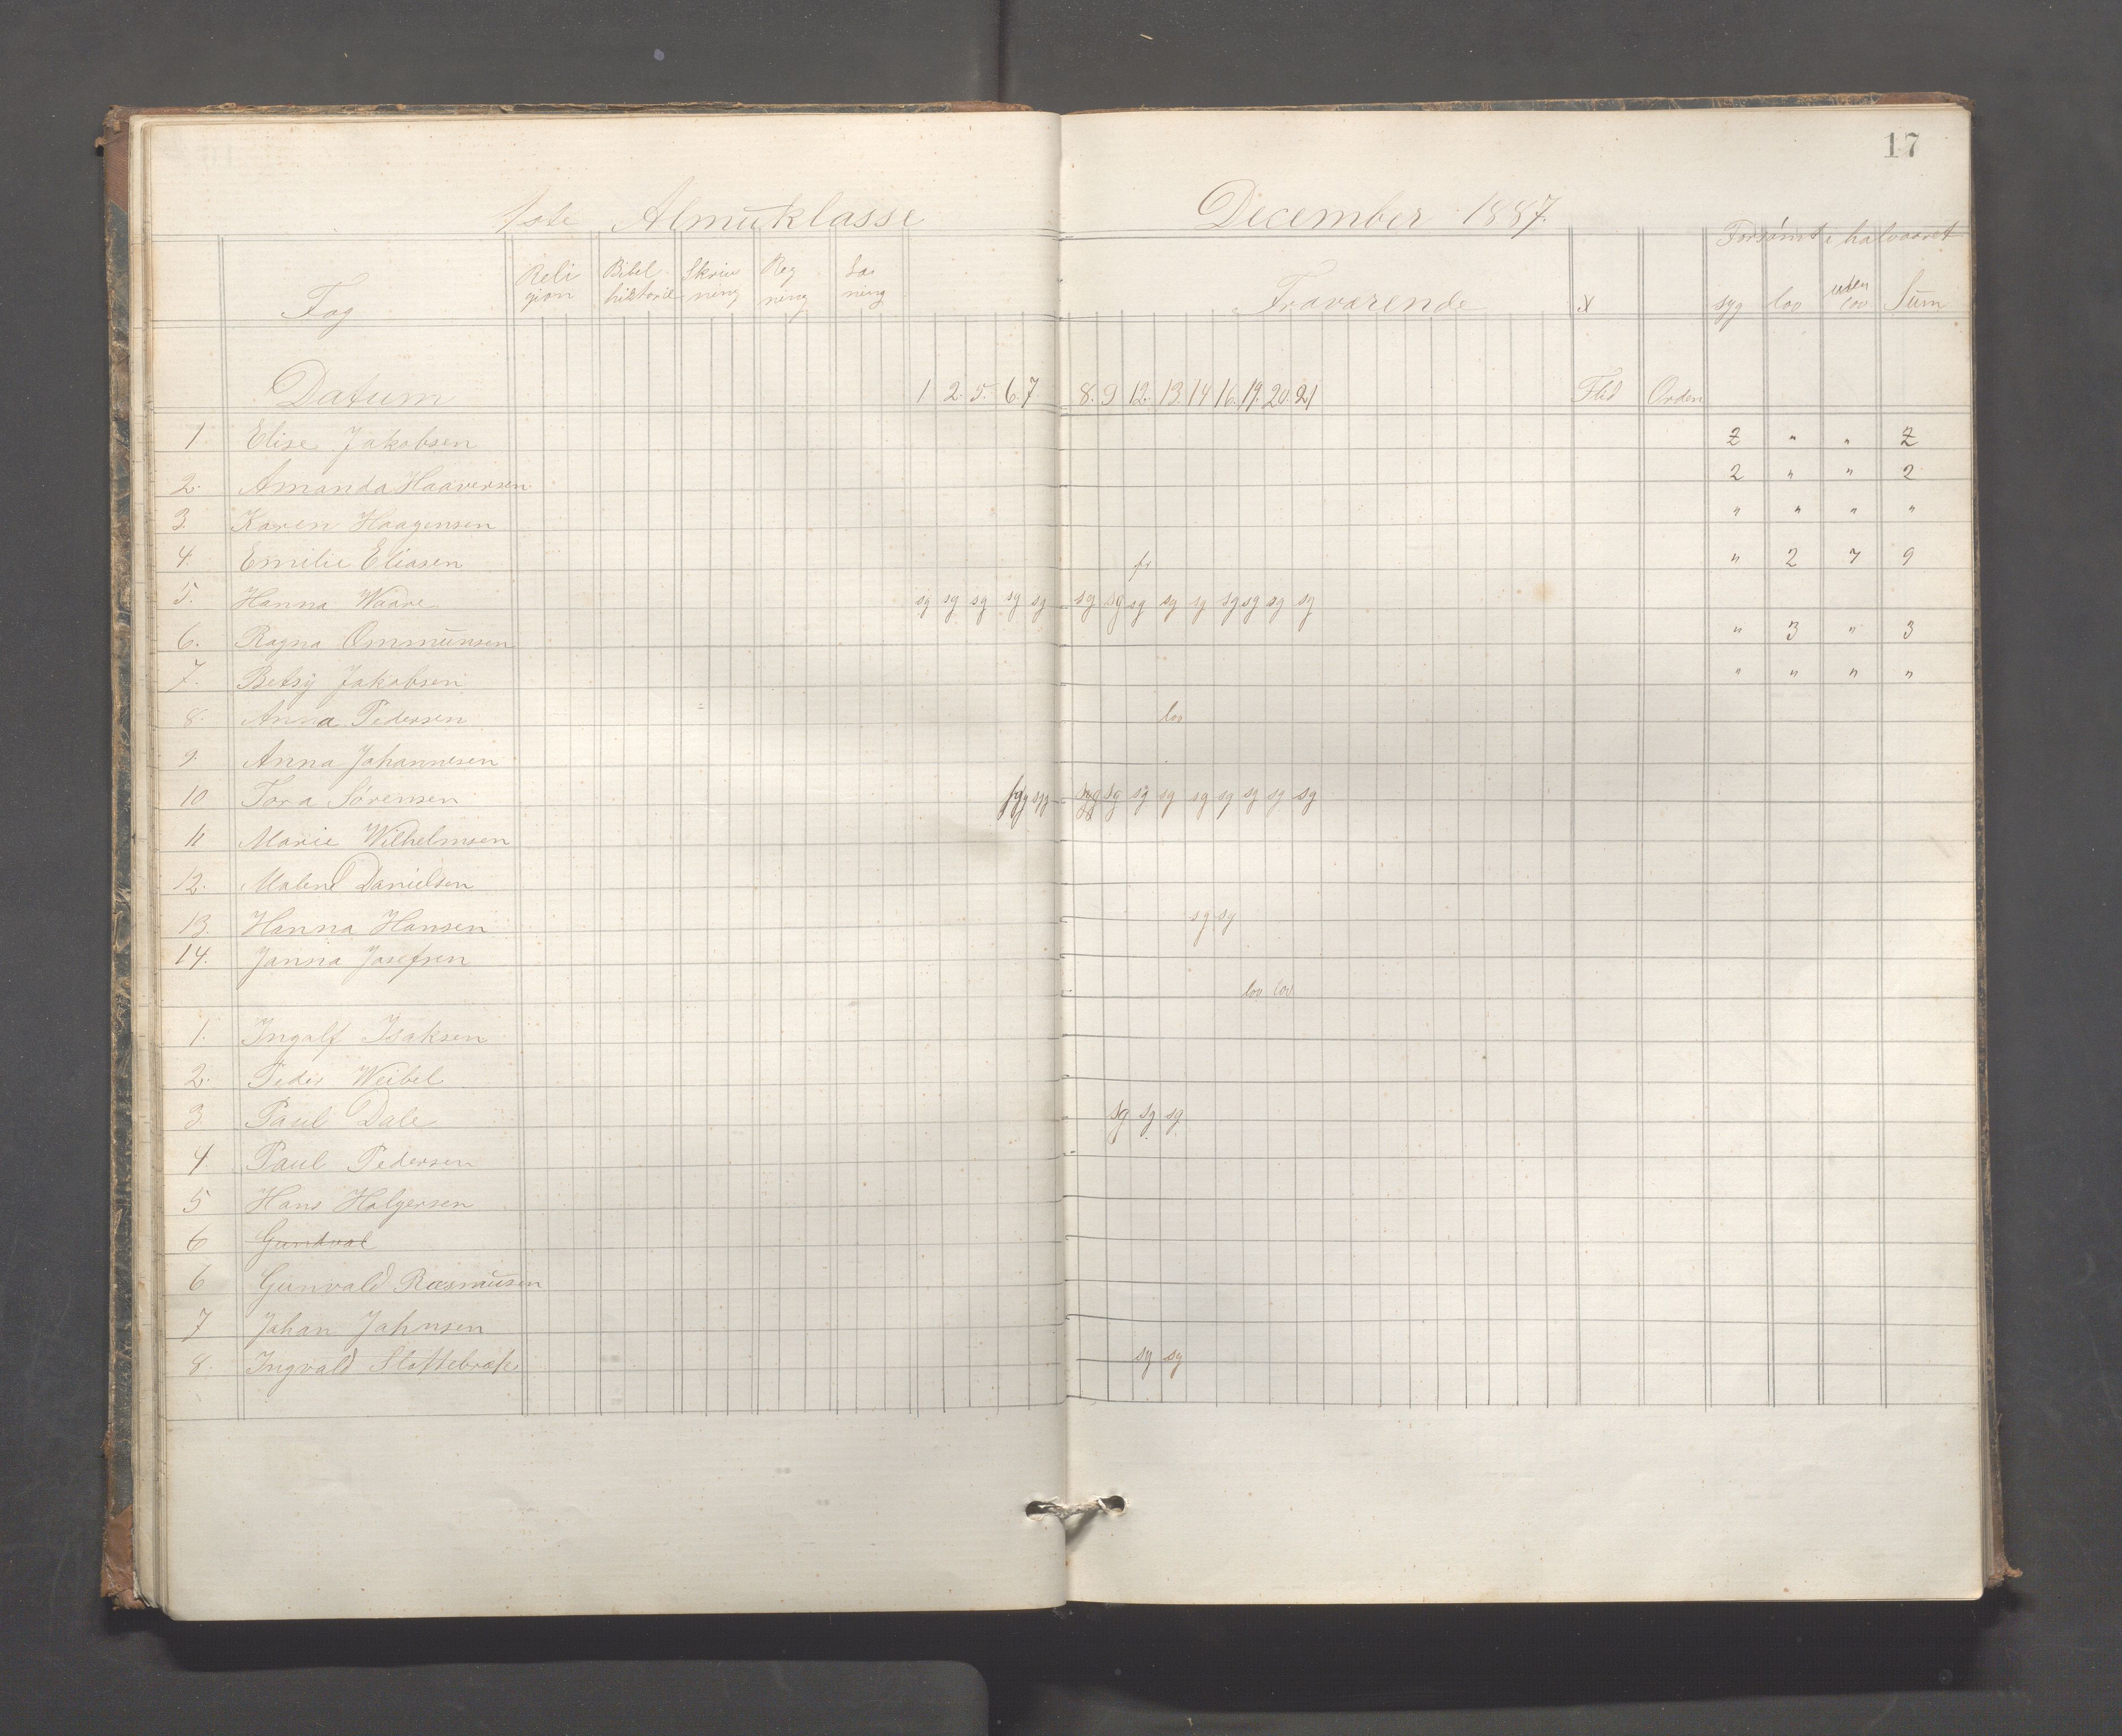 17
1ste Almuklasse December 1887.
Forsømt i halvaaret
Fag Reli gion Bibel historie Skriv ning Reg ning Læs ning Fraværende syg lov uden lov Sum
Datum 1 2. 5. 6. 7. 8. 9 12. 13. 14 16. 19. 20. 21 Flid Orden
1 Elise Jakobsen 2 " " 2
2. Amanda Haaversen 2 " " 2
3. Karen Haagensen " " " "
4. Emilie Eliasen fr " 2 7 9
5. Hanna Waare sg sg sg sg sg sg sg sg sg sg sg sg sg sg
6. Ragna Ommunsen " 3 " 3
7. Betsy Jakobsen " " " "
8. Anna Pedersen lov
9. Anna Johannesen
10 Tora Sørensen syg syg sg sg sg sg sg sg sg sg
11 Marie Wilhelmsen
12. Malene Danielsen
13. Hanna Hansen sg sg
14. Janna Josefsen
lov lov
1. Ingolf Isaksen
2. Peder Weibel
3. Paul Dale sg sg sg
4 Paul Pedersen
5 Hans Holgersen
6 Gundval
6 Gunvald Rasmusen
7 Johan Johnsen
8. Ingvald Slottebrøk sg sg